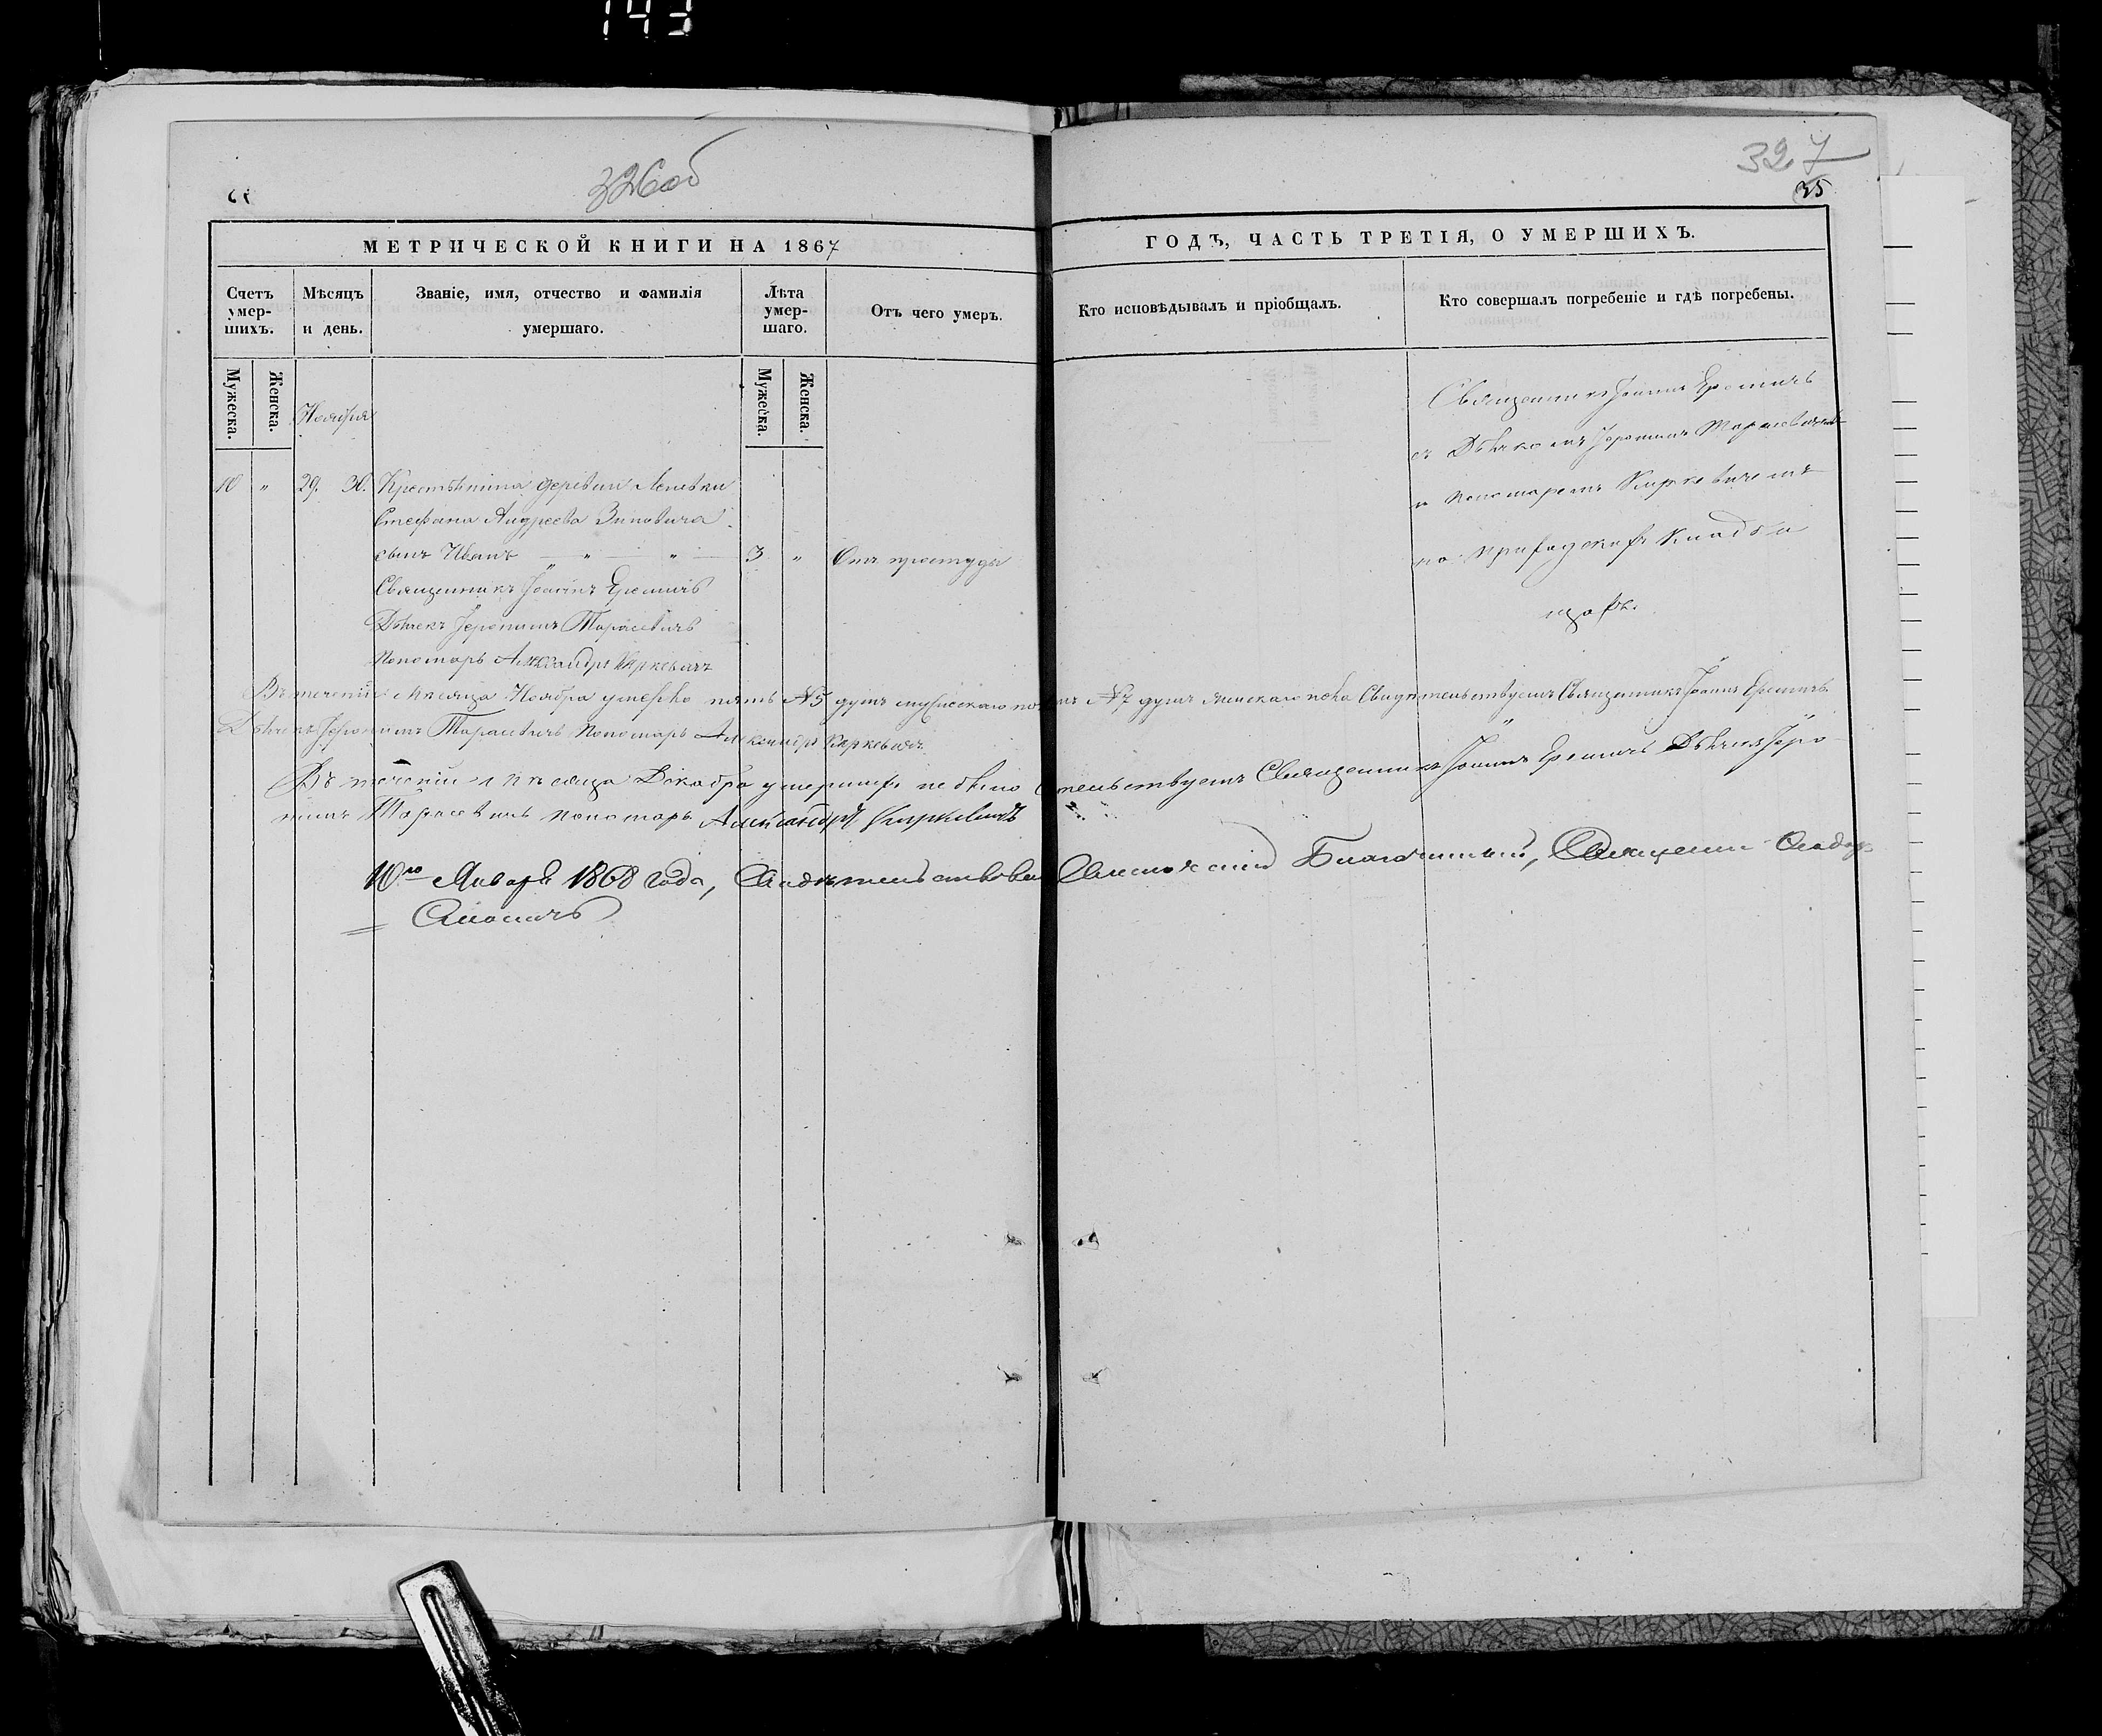 143
326об
327
35
МЕТРИЧЕСКОЙ КНИГИ НА 1867
ГОДЪ, ЧАСТЬ ТРЕТІЯ, О УМЕРШИХЪ.
Счетъ умер-шихъ.
Мѣсяцъ и день.
Званіе, имя, отчество и фамилія умершаго.
Лѣта умер-шаго.
Отъ чего умеръ.
Кто исповѣдывалъ и пріобщалъ.
Кто совершалъ погребеніе и гдѣ погребены.
Мужеска.
Женска.
Мужеска.
Женска.
Ноября
10 " 29. 30. Крестьянина деревни
Стефана Андреева Зиновича
сынъ Иванъ — " — " — 3 " Отъ простуды
Священникъ Іоаннъ Еремичъ
Дьячекъ Іеронимъ Тарасевичъ
Пономарь Александръ Киркевичъ
Священникъ Іоаннъ Еремичъ
съ Дьячкомъ Іеронимъ Тарасевичемъ
и пономаремъ Киркевичемъ
на приходскомъ кладби
щахъ.
Въ теченіи мѣсяца Ноября умерло пять №5 душъ мужескаго пола №7 душъ женскаго пола Свидѣтельствуетъ Священникъ Іоаннъ Еремичъ
Дьячекъ Іеронимъ Тарасевичъ Пономарь Александръ Киркевичъ
Въ теченіи мѣсяца Декабря умершихъ небыло Священникъ Іоаннъ Еремичъ Дьячекъ Іеро-
нимъ Тарасевичъ пономарь Александръ Киркевичъ
10го Января 1868 года, Свидѣтельствовалъ Благочинный, Священникъ